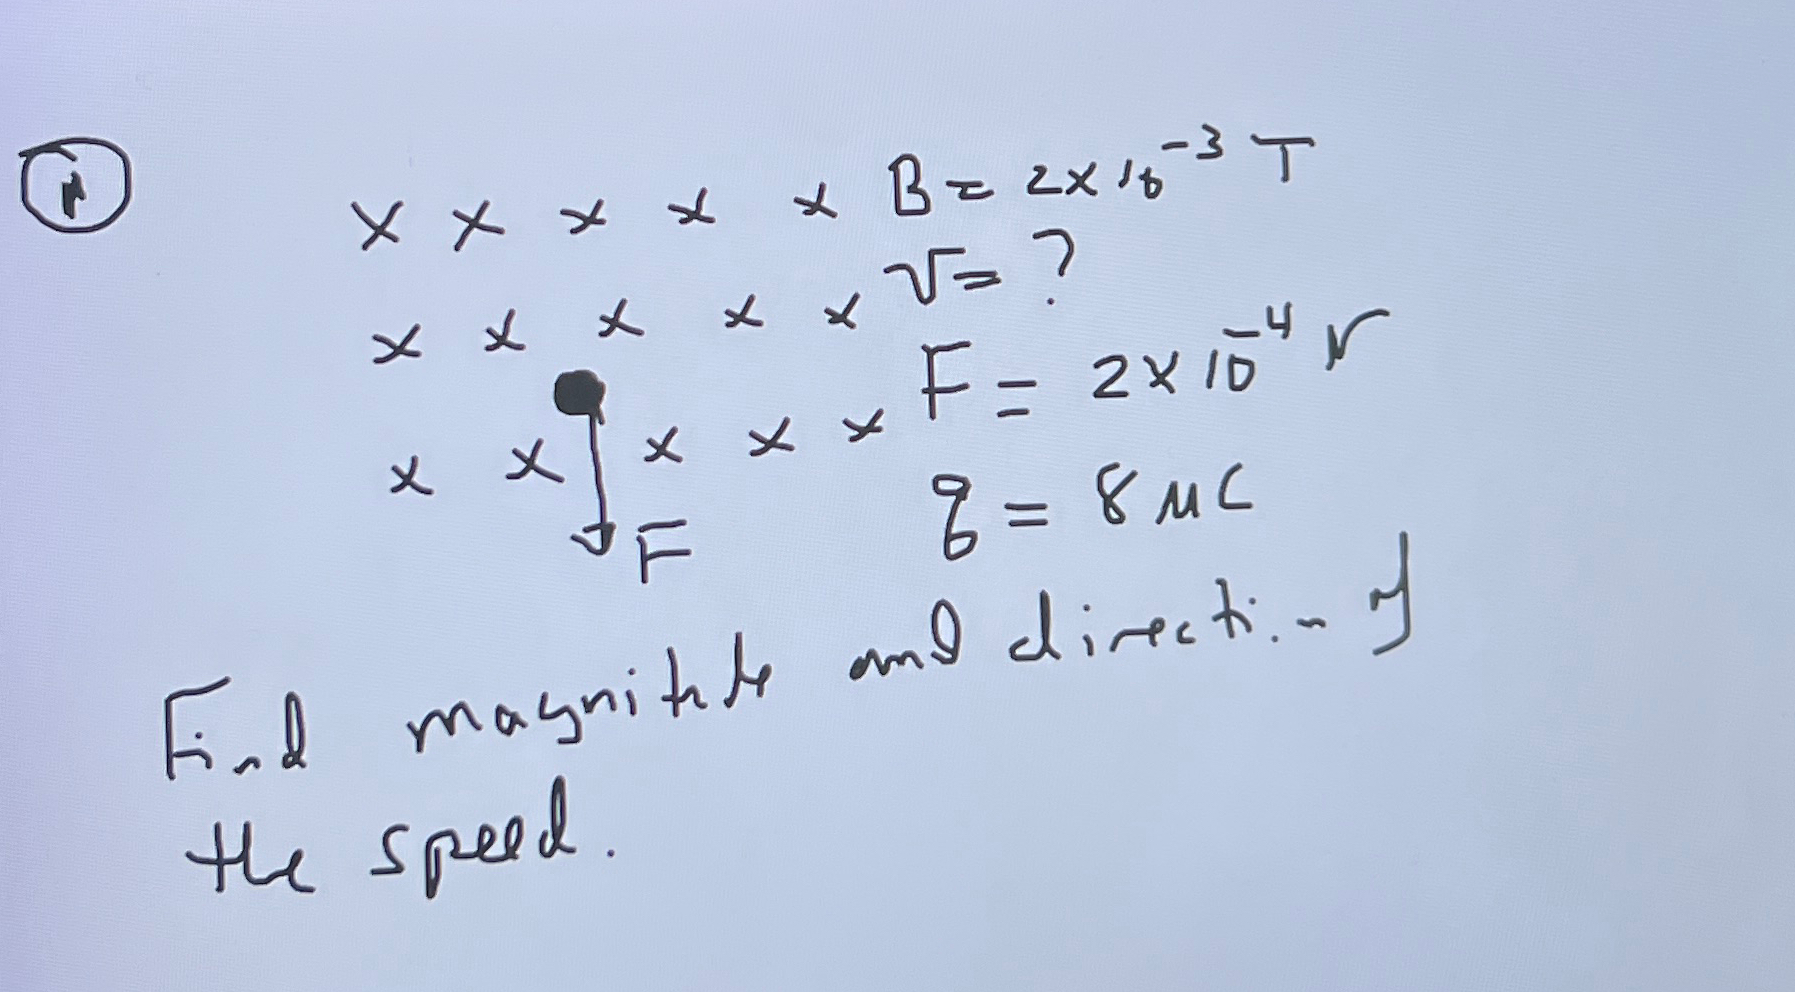 1
x x x x x B = 2x10⁻³ T
x x x x x V = ?
x x x x x F = 2x10⁻⁴ N
F q = 8 μC
Find magnitude and direction of
the speed.